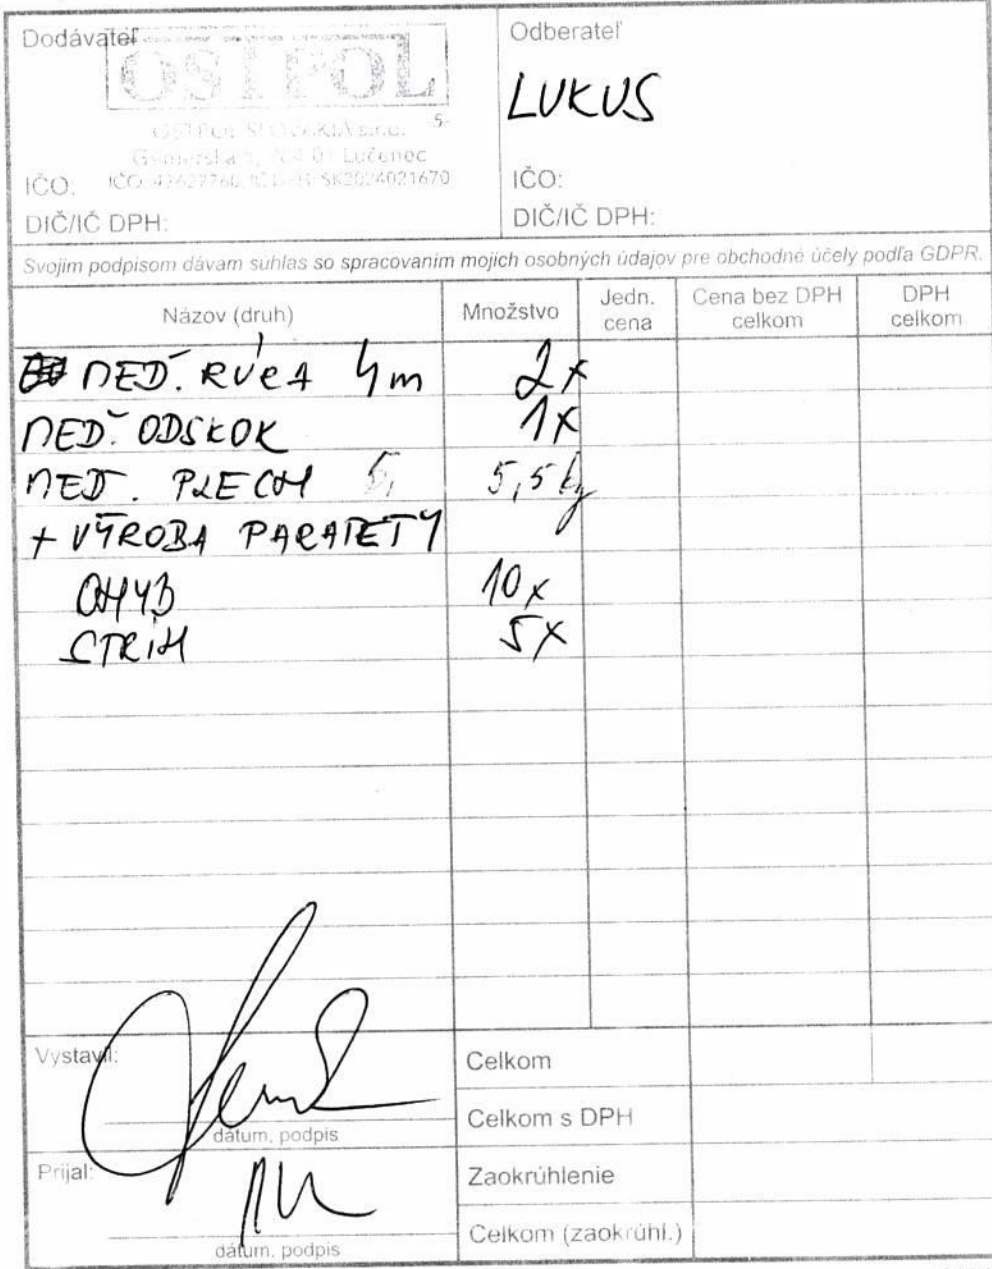 Dodávateľ
OSTPOL
5.
OSTPOL SLOVAKIA s.r.o.
Lučenec
IČO: SK2024021670
IČO:
DIČ/IČ DPH:
Odberateľ
LUKUS
IČO:
DIČ/IČ DPH:
Svojim podpisom dávam súhlas so spracovaním mojich osobných údajov pre obchodné účely podľa GDPR.
Názov (druh) Množstvo Jedn. cena Cena bez DPH celkom DPH celkom
MEĎ. RÚRA 4m 2x
MEĎ. ODSKOK 1x
MEĎ. PLECH 5, 5,5 kg
+ VÝROBA PARAPETY
OHYB 10x
STRIH 5x
Vystavil:
dátum, podpis
Prijal:
dátum, podpis
Celkom
Celkom s DPH
Zaokrúhlenie
Celkom (zaokrúhl.)